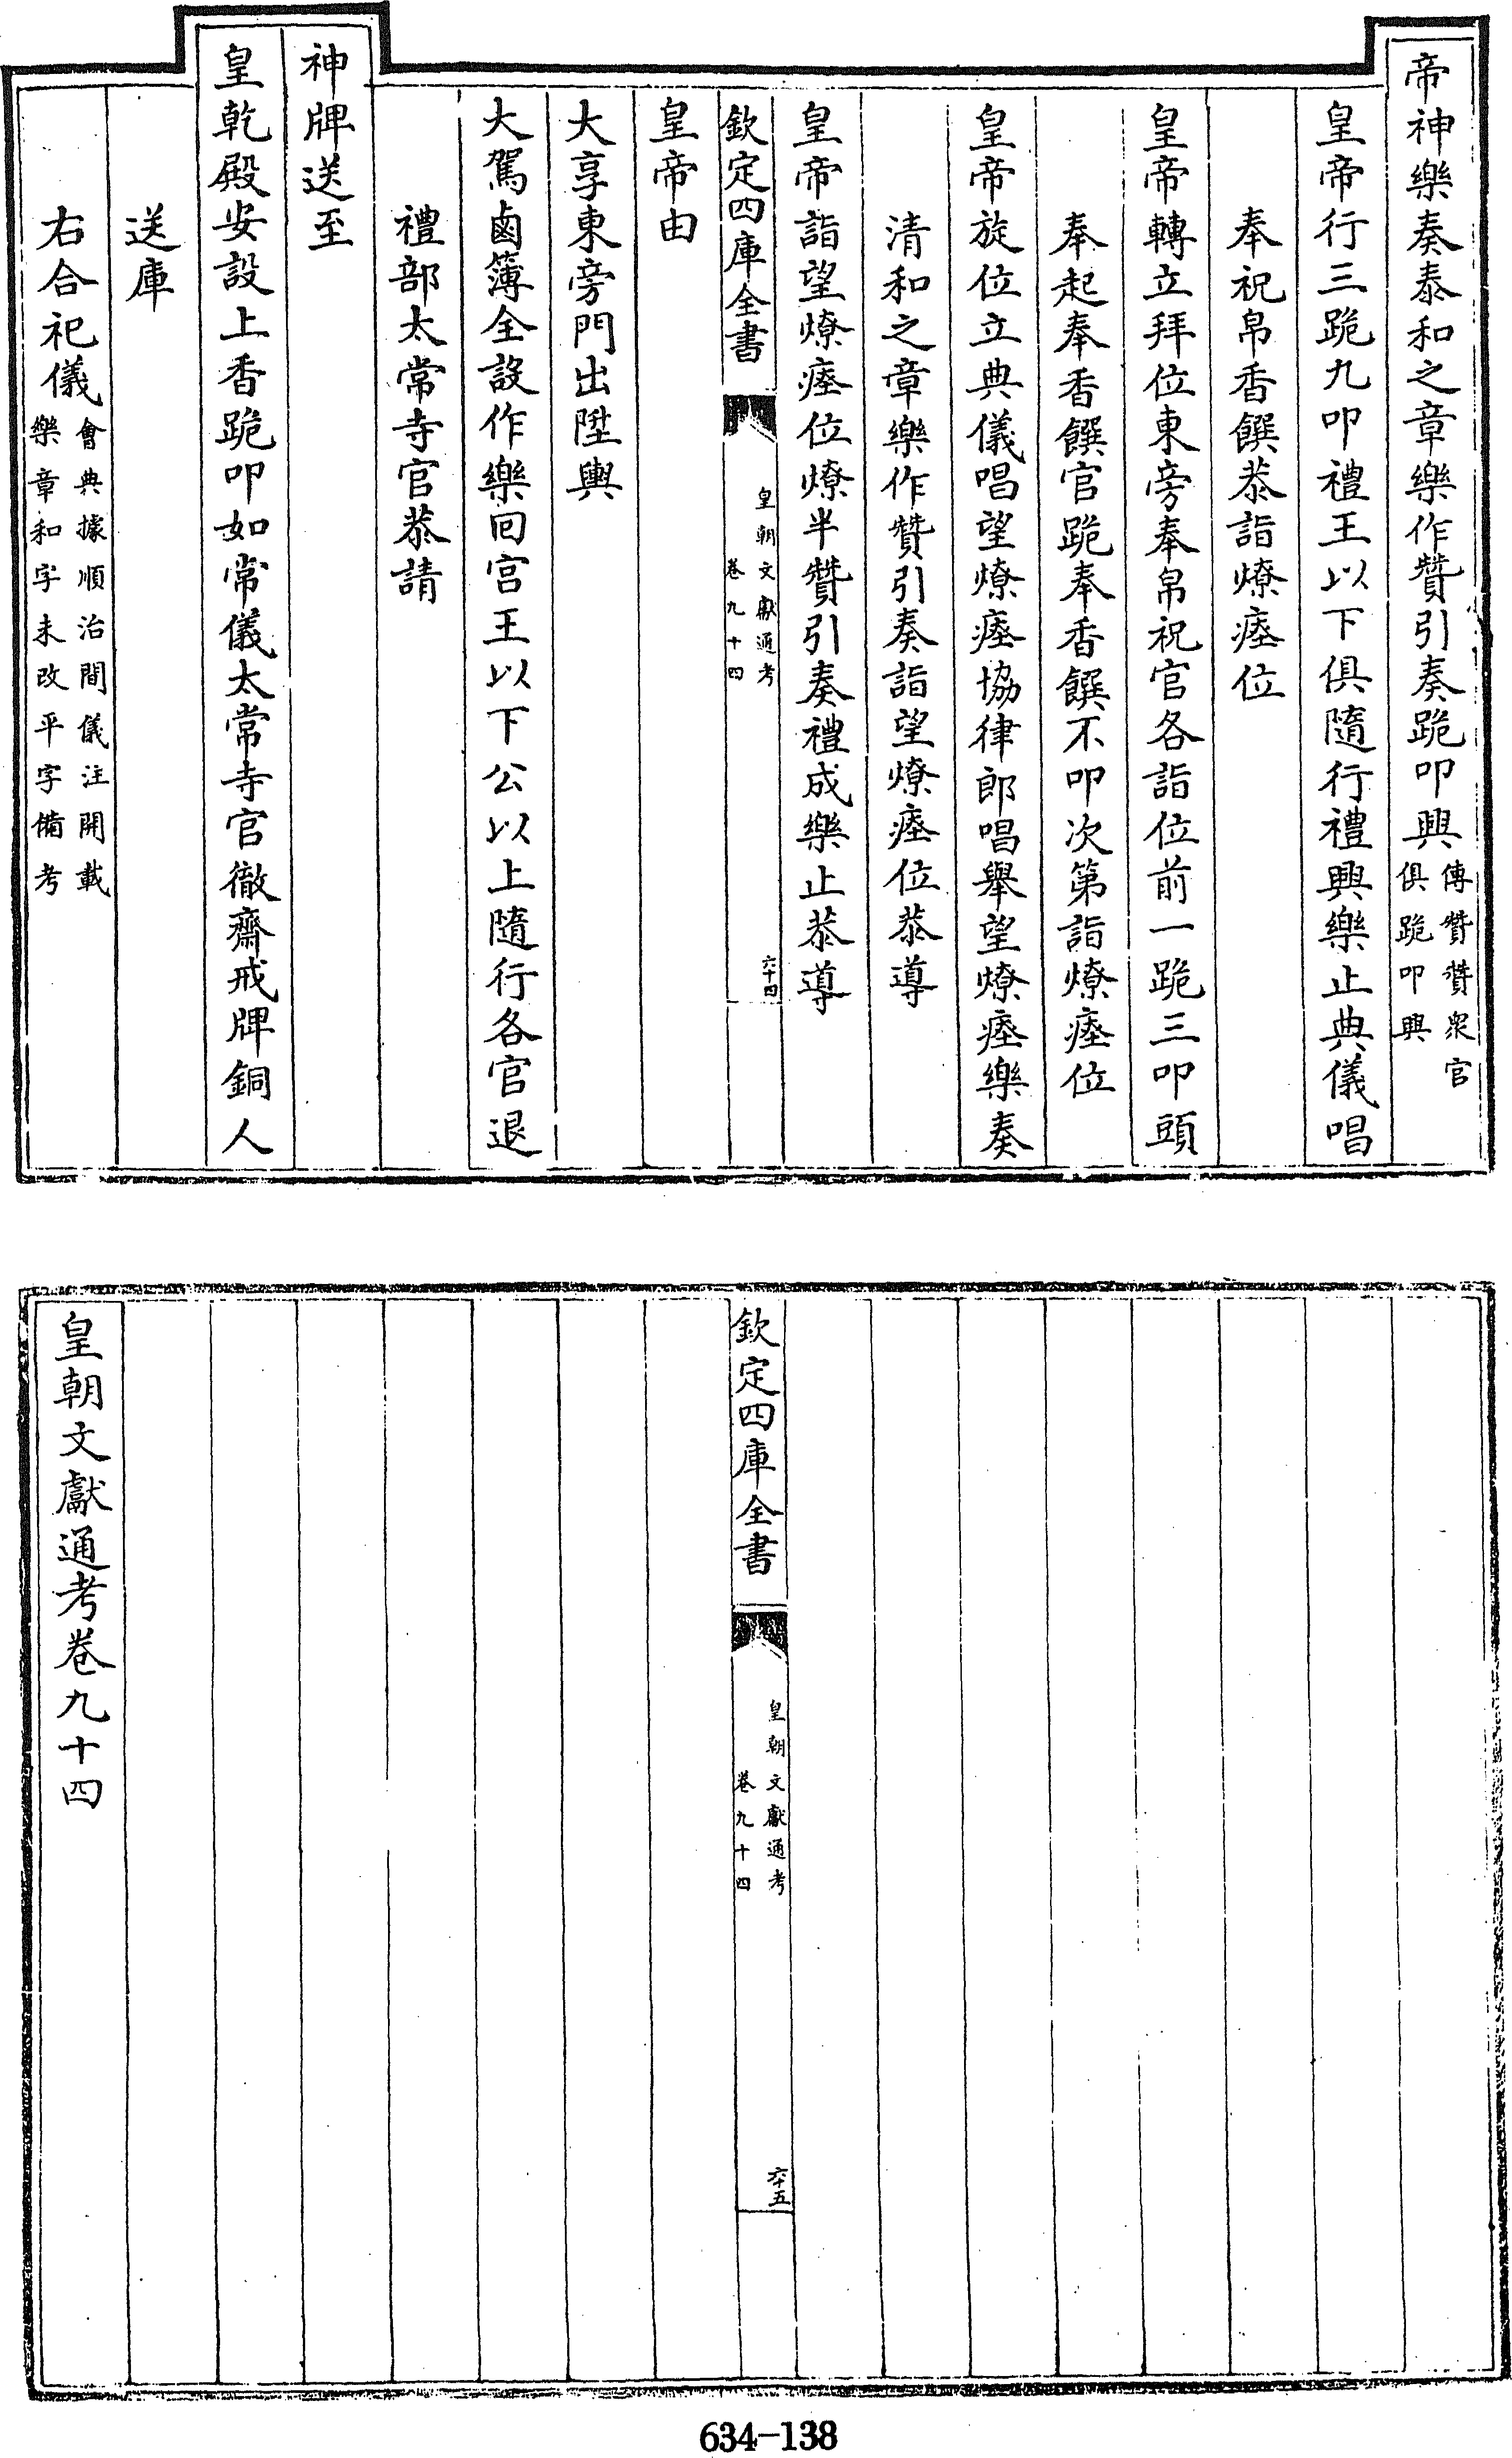 帝神樂奏泰和之章樂作贊引奏跪叩興傳贊贊衆官俱跪叩興
皇帝行三跪九叩禮王以下俱隨行禮興樂止典儀唱
奉祝帛香饌恭詣燎瘞位
皇帝轉立拜位東旁奉帛祝官各詣位前一跪三叩頭
奉起奉香饌官跪奉香饌不叩次第詣燎瘞位
皇帝旋位立典儀唱望燎瘞協律郎唱舉望燎瘞樂奏
清和之章樂作贊引奏詣望燎瘞位恭導
皇帝詣望燎瘞位燎半贊引奏禮成樂止恭導
欽定四庫全書
皇朝文獻通考
卷九十四
六十四
皇帝由
大享東旁門出陞輿
大駕鹵簿全設作樂回宮王以下公以上隨行各官退
禮部太常寺官恭請
神牌送至
皇乾殿安設上香跪叩如常儀太常寺官徹齋戒牌銅人
送庫
右合祀儀會典據順治間儀注開載樂章和字未改平字備考
欽定四庫全書
皇朝文獻通考
卷九十四
六十五
皇朝文獻通考卷九十四
634-138